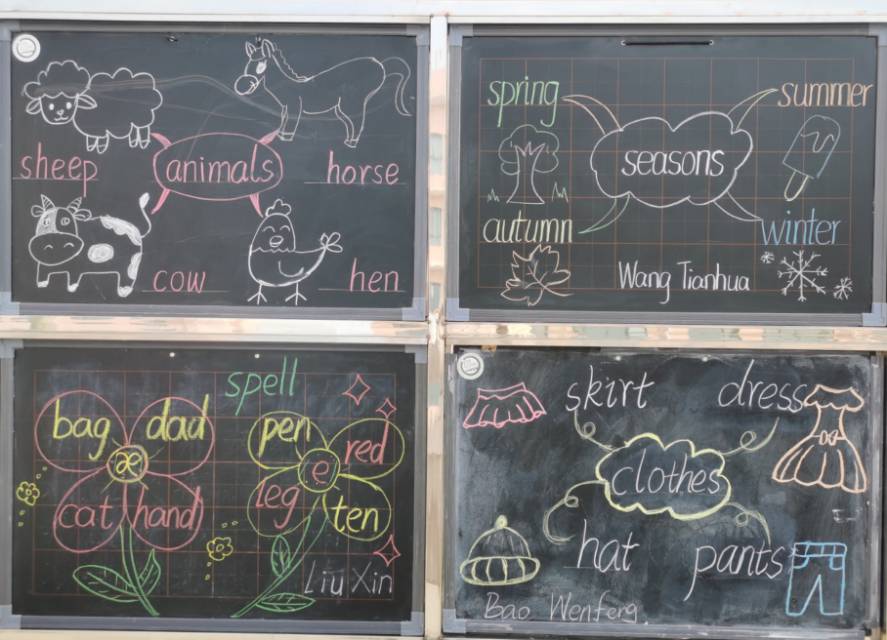 sheep
animals
horse
cow
hen
spring
summer
seasons
autumn
winter
Wang Tianhua
spell
bag dad
æ
cat hand
pen red
e
leg ten
Liu Xin
skirt
dress
clothes
hat
pants
Bao Wenferg